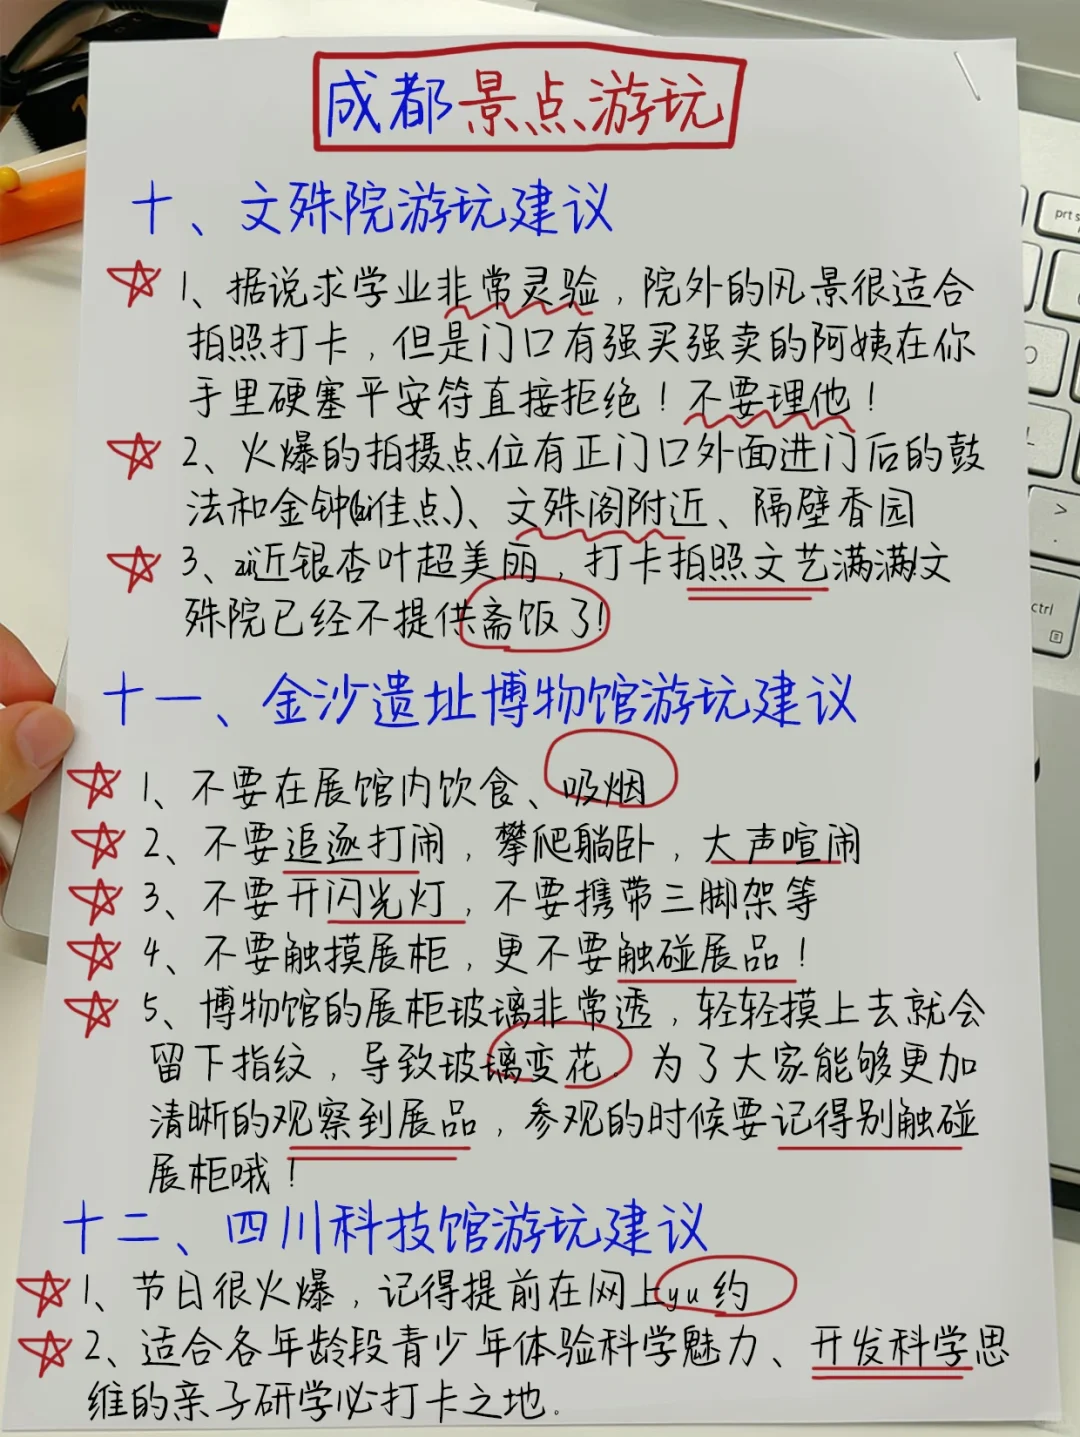 成都景点游玩
十、文殊院游玩建议
1、据说求学业非常灵验，院外的风景很适合
拍照打卡，但是门口有强买强卖的阿姨在你
手里硬塞平安符直接拒绝！不要理他！
2、火爆的拍摄点位有正门口外面进门后的鼓
法和金钟(佳点)、文殊阁附近、隔壁香园
3、zui近银杏叶超美丽，打卡拍照文艺满满!文
殊院已经不提供斋饭了!
十一、金沙遗址博物馆游玩建议
1、不要在展馆内饮食、吸烟
2、不要追逐打闹，攀爬躺卧，大声喧闹
3、不要开闪光灯，不要携带三脚架等
4、不要触摸展柜，更不要触碰展品！
5、博物馆的展柜玻璃非常透，轻轻摸上去就会
留下指纹，导致玻璃变花。为了大家能够更加
清晰的观察到展品，参观的时候要记得别触碰
展柜哦！
十二、四川科技馆游玩建议
1、节日很火爆，记得提前在网上yu约
2、适合各年龄段青少年体验科学魅力、开发科学思
维的亲子研学必打卡之地.
prt s
ctrl